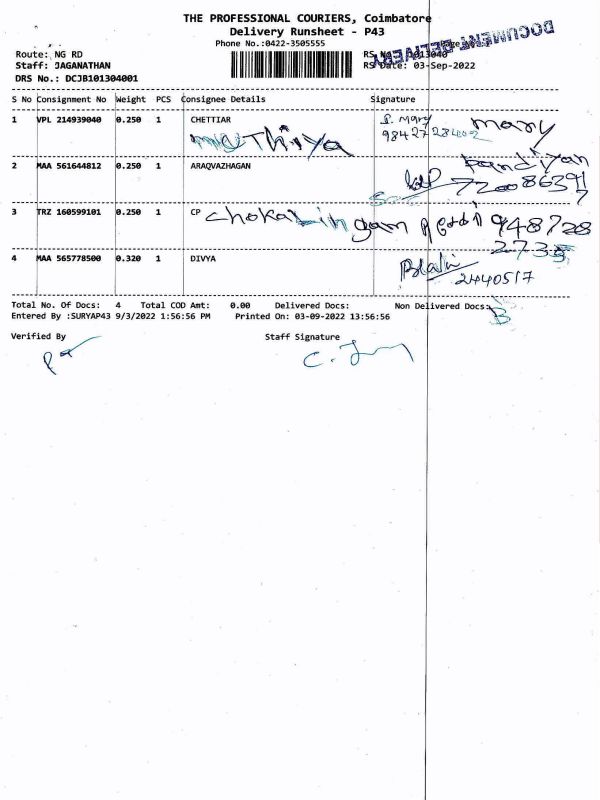 THE PROFESSIONAL COURIERS, Coimbatore
Delivery Runsheet - P43
Phone No.:0422-3505555
DOCUMENT DELIVERY
Route: NG RD
RS No: 1013040
Staff: JAGANATHAN
RS Date: 03-Sep-2022
DRS No.: DCJB101304001
S No Consignment No Weight PCS Consignee Details Signature
1 VPL 214939040 0.250 1 CHETTIAR
P. Mary mary
muthiya
2 MAA 561644812 0.250 1 ARAQVAZHAGAN
Pandiyan
3 TRZ 160599101 0.250 1 CP chokalingam
4 MAA 565778500 0.320 1 DIVYA
2440517
Total No. Of Docs: 4 Total COD Amt: 0.00 Delivered Docs: Non Delivered Docs:
Entered By :SURYAP43 9/3/2022 1:56:56 PM Printed On: 03-09-2022 13:56:56
Verified By Staff Signature